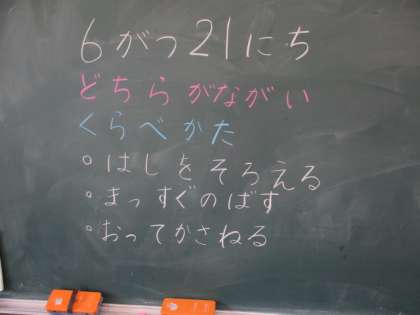 6がつ21にち
どちらがながい
くらべかた
○はしをそろえる
○まっすぐのばす
○おってかさねる